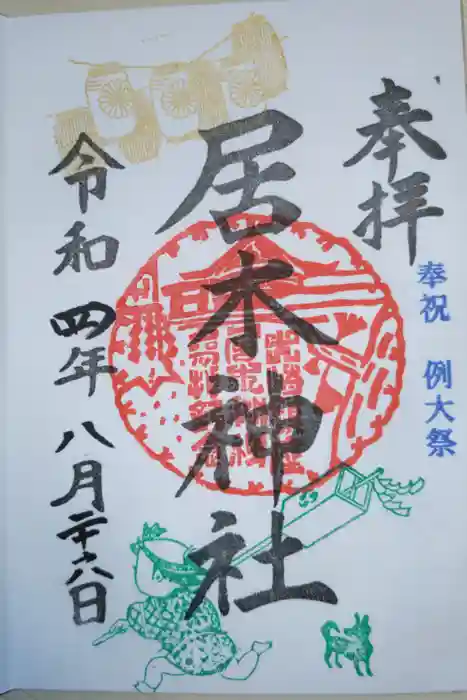 奉拝
奉祝 例大祭
居木神社
令和四年八月二十八日